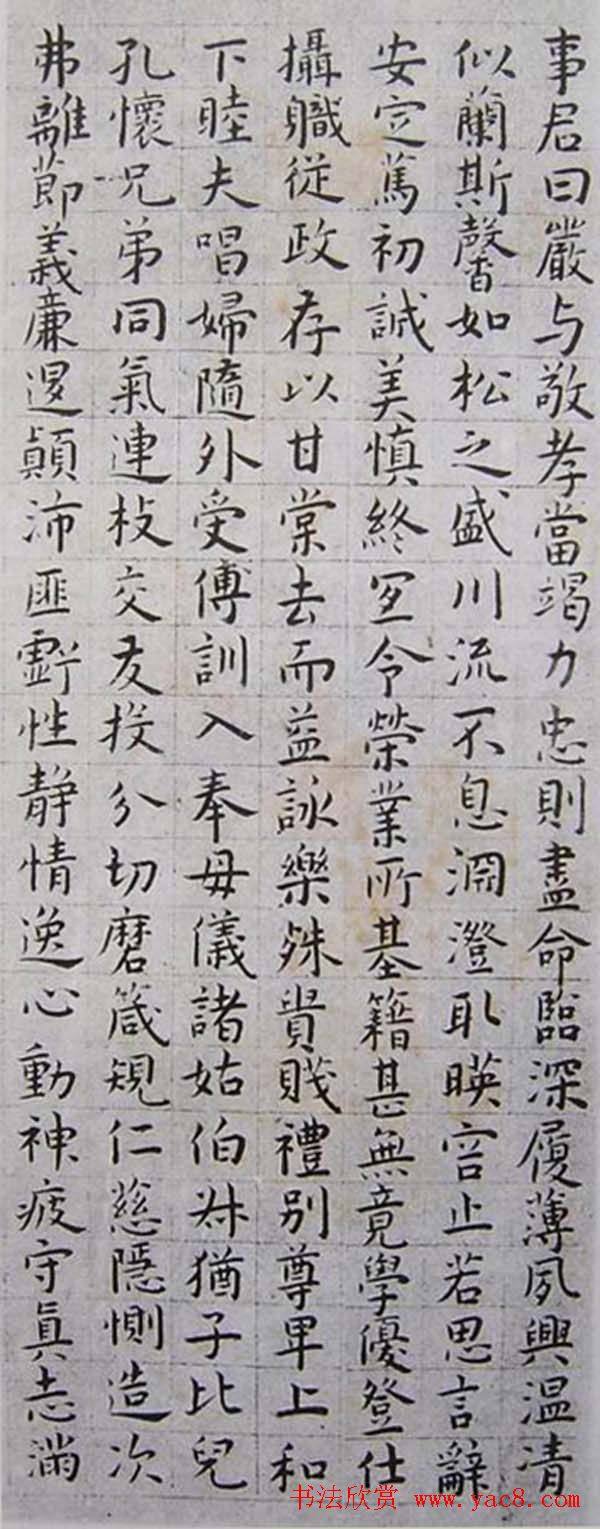 事君曰嚴与敬孝當竭力忠則盡命臨深履薄夙興温凊
似蘭斯馨如松之盛川流不息渊澄取暎容止若思言辭
安定篤初誠美慎終冝令榮業所基籍甚無竟學優登仕
攝職從政存以甘棠去而益詠樂殊貴賤禮别尊卑上和
下睦夫唱婦隨外受傅訓入奉母儀諸姑伯叔猶子比兒
孔懷兄弟同氣連枝交友投分切磨箴規仁慈隱惻造次
弗離節義廉退顛沛匪虧性静情逸心動神疲守真志滿
书法欣赏 www.yac8.com